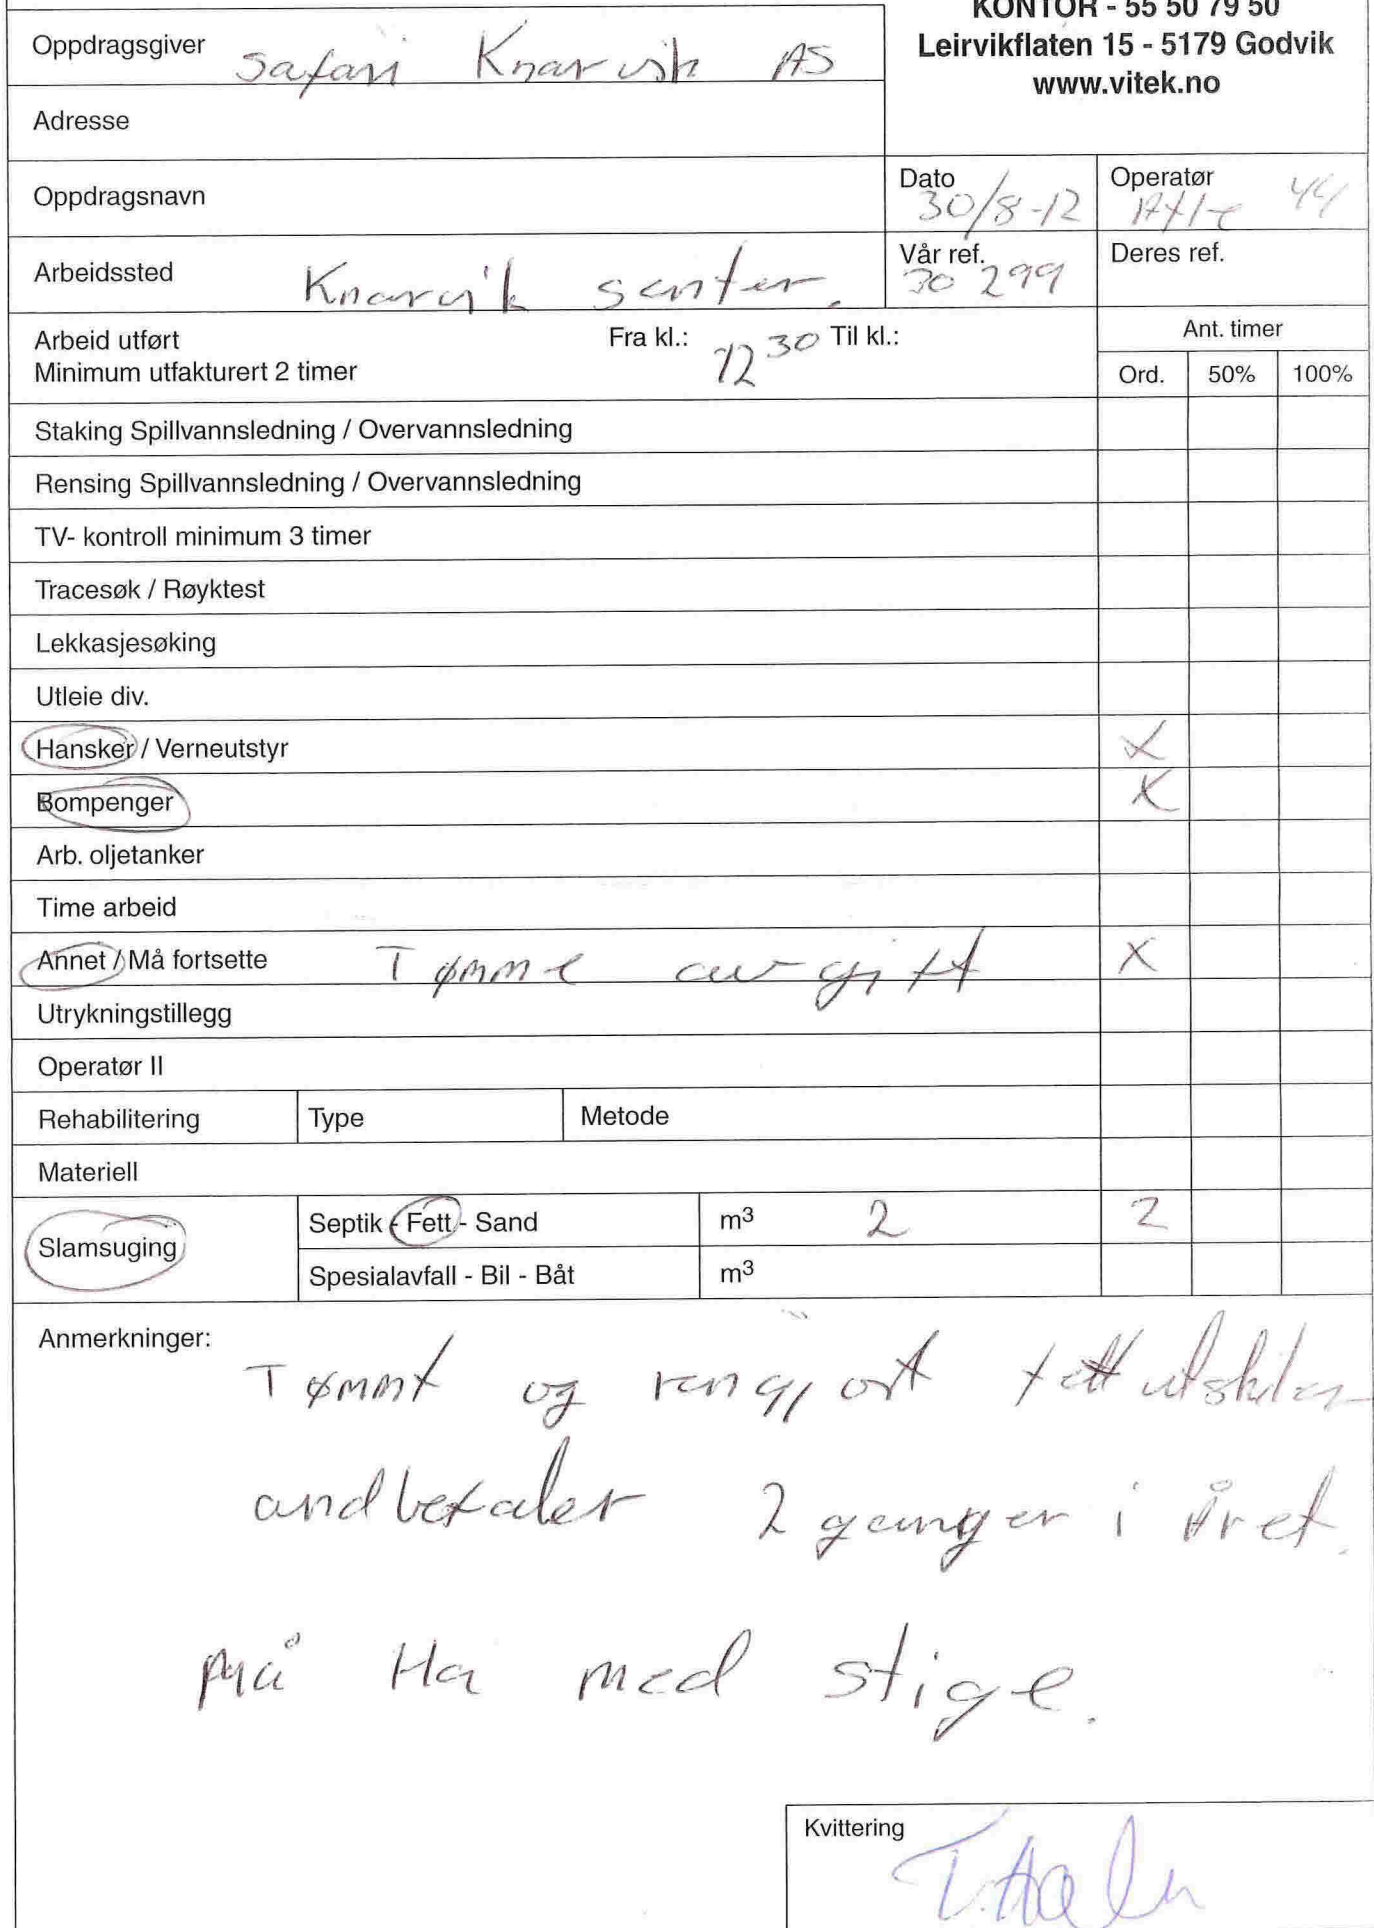 KONTOR - 55 50 79 50
Oppdragsgiver Safari Knarvik AS
Leirvikflaten 15 - 5179 Godvik
www.vitek.no
Adresse
Oppdragsnavn
Dato 30/8-12
Operatør Atle 44
Arbeidssted Knarvik senter.
Vår ref. 30 299
Deres ref.
Arbeid utført Fra kl.: 12 30 Til kl.:
Minimum utfakturert 2 timer
Ant. timer
Ord. 50% 100%
Staking Spillvannsledning / Overvannsledning
Rensing Spillvannsledning / Overvannsledning
TV- kontroll minimum 3 timer
Tracesøk / Røyktest
Lekkasjesøking
Utleie div.
Hansker / Verneutstyr X
Bompenger X
Arb. oljetanker
Time arbeid
Annet / Må fortsette Tømme avgift X
Utrykningstillegg
Operatør II
Rehabilitering Type Metode
Materiell
Slamsuging
Septik - Fett - Sand m³ 2 2
Spesialavfall - Bil - Båt m³
Anmerkninger:
Tømmt og rengjort fettutskiler
andbefaler 2 ganger i året.
Må Ha med stige.
Kvittering